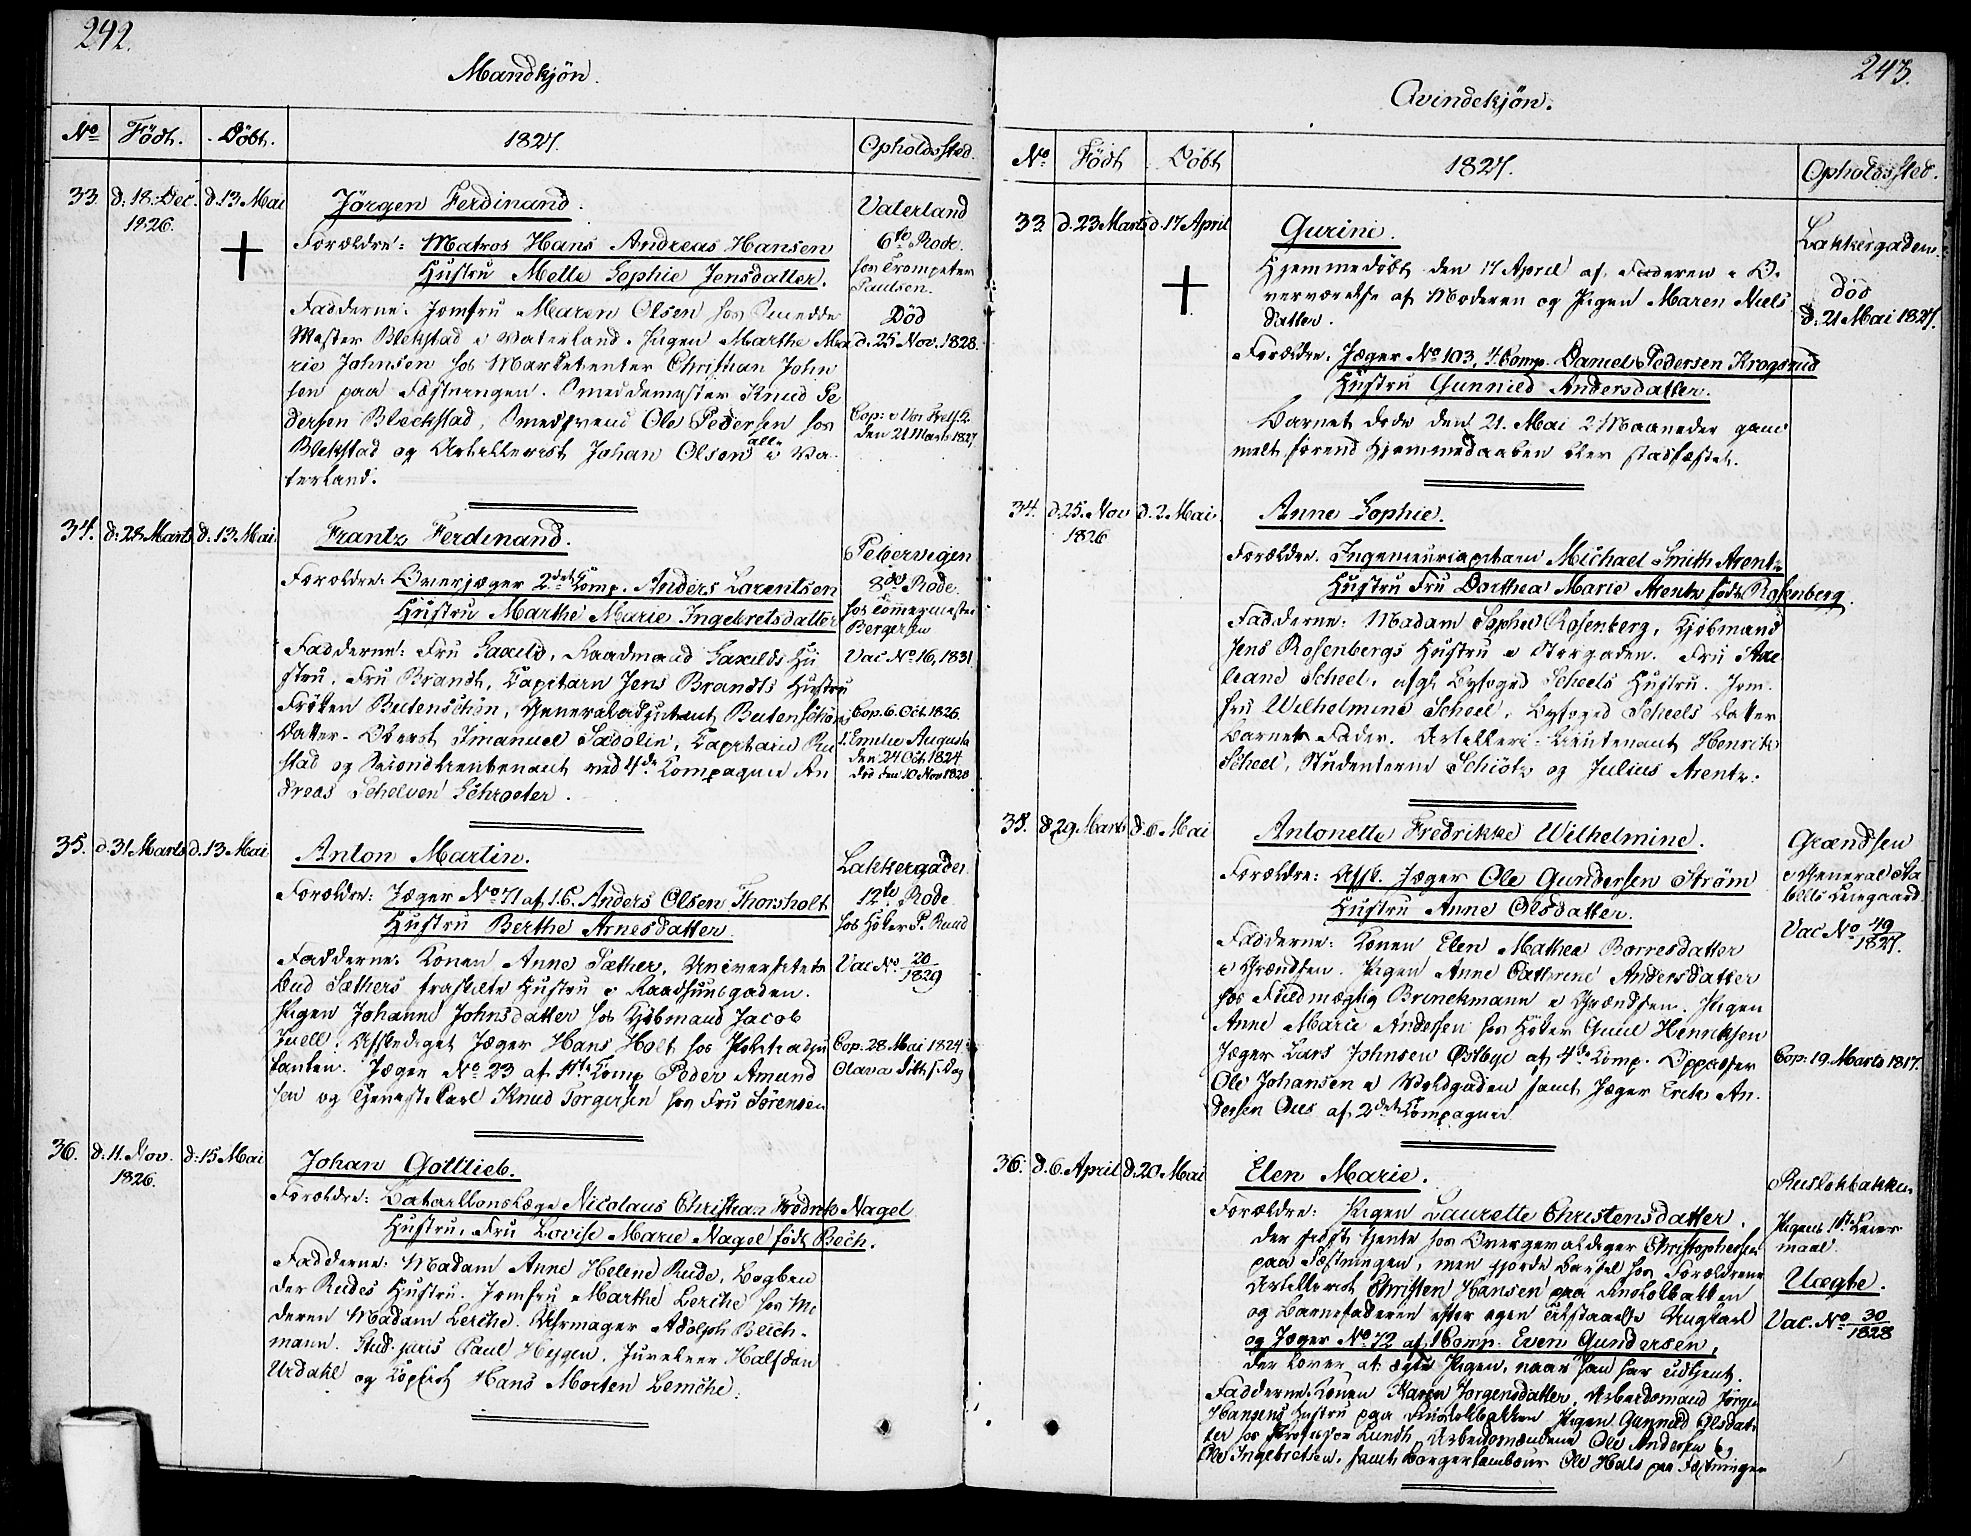 242.
Mandkjøn.
No Födt. Döbt. 1827. Opholdssted.
33 d: 18: Dec. 1826. d. 13 Mai
Jörgen Ferdinand.
Forældre: Matros Hans Andreas Hansen
Hustru Mette Sophie Jensdatter.
Faddere: Jomfru Maren Olsen hos Smedde
Mester Blekstad i Vaterland. Pigen Marthe Ma
rie Johnsen hos Marketenter Christian John
sen paa Fæstningen. Smeddemester Knud Pe
dersen Bleckstad, Smedsvend Ole Pedersen hos
Blekstad og Artillerist Johan Olsen alle i Va
terland.
Vaterland
6te Rode.
hos Trompeter
Paulsen.
Död
d. 25 Nov. 1828.
Cop: i Vor Frels. K.
den 21 Marts 1827
34. d: 28 Marts d. 13 Mai
Frantz Ferdinand.
Forældre: Overjæger 2det Comp. Anders Larentsen
Hustru Marthe Marie Ingebretsdatter
Fadderne: Fru Saxild, Raadmand Saxilds Hu
stru, Fru Brandt, Capitain Jens Brandts Hustru
Fröken Butenschön, Generaladjutant Butenschöns
Datter. Oberst Imanuel Sadolin, Capitain Ru
stad og Secondlieutenant ved 4de Compagnie An
dreas Schelven Schroeter.
Pebervigen
8de Rode.
hos Tömermester
Bergersen
Vac No 16, 1831.
Cop. 6. Oct. 1826.
1. Emelie Augusta
den 24 Oct. 1824
död den 10 Nov 1828
35. d. 31 Marts d. 13 Mai
Anton Martin.
Forældre: Jæger No 71 af 1.C. Anders Olsen Thorsholt
Hustru Berthe Arnesdatter.
Fadderne: Konen Anne Sæther, Universitets
bud Sæthers fraskilte Hustru i Raadhuusgaden.
Pigen Johanne Johnsdatter hos Kjöbmand Jacob
Juell. Afskediget Jæger Hans Holt hos Politiadju
tanten. Jæger No 23 af 1ste Comp Peder Amund
sen og Tjeneste Karl Knud Torgersen hos Fru Sörensen
Lakkergaden
12te Rode.
hos Höker P. Ruud
Vac No. 20/1829
Cop. 28 Mai 1824
Olava
36. d: 11. Nov. 1826. d: 15 Mai
Johan Gottlieb.
Forældre: Bataillonslæge Nicolaus Christian Fredrik Nagel
Hustru, Fru Lovise Marie Nagel födt Bech.
Fadderne: Madam Anne Helene Rude, Bogbin
der Rudes Hustru. Jomfru Marthe Lerche hos Mo
deren Madam Lerche. Uhrmager Adolph Bich-
mann. Stud. juris Paul Heygen, Juveleer Halfdan
Urdahl og Copist Hans Morten Lemche.
243.
Qvindekjøn.
No. Födt Döbt 1827. Opholdssted.
33. d. 23 Marts d. 17 April
Gurine.
Hjemmedöbt den 17 April af Faderen i O-
verværelse af Moderen og Pigen Maren Niels
datter.
Forældre. Jæger No 103, 4 Comp. Daniel Pedersen Krogsrud
Hustru Gunnild Andersdatter.
Barnet döde den 21. Mai 2 Maaneder gam
melt förend Hjemmedaaben blev stadfæstet.
Lakkergaden.
död
d. 21 Mai 1827.
34. d. 25. Nov 1826 d. 2. Mai.
Anne Sophie.
Forældre. Ingenieurcapitain Michael Smith Arentz
Hustru Fru Dorthea Marie Arentz födt Rosenberg.
Fadderne: Madam Sophie Rosenberg, Kjöbmand
Jens Rosenbergs Hustru i Storgaden. Fru
Scheel, afg. Byfoged Scheels Hustru. Jom-
fru Wilhelmine Scheel, Byfoged Scheels Datter
Barnets Fader. Artilleri-Lieutenant Henrik
Scheel, Studenterne Schiötz og Julius Arentz.
35. d. 29. Marts d. 6. Mai
Antonette Fredrikke Wilhelmine.
Forældre: Afsk. Jæger Ole Gundersen Ström
Hustru Anne Olsdatter.
Fadderne: Konen Elen Mathea Borresdatter
i Grændsen. Pigen Anne Cathrine Andersdatter
hos Fuldmægtig Brinckmann i Grændsen. Pigen
Anne Marie Andersen hos Höker Henriksen
Jæger Lars Johnsen Østbye af 4de Comp. Oppasser
Ole Johansen i Voldgaden samt Jæger Erik An-
dersen af 2det Compagnie
Grændsen
i General
Vac No 49/1827.
Cop: 19. Marts 1817.
36: d. 6. April d. 20 Mai
Elen Marie.
Forældre: Pigen Laurette Christensdatter,
der sidst tjente hos Overgevaldiger Christophersen
paa Fæstningen, men gjorde Barsel hos Forældrene
Artillerist Christen Hansen paa Ruslökbakken
og Barnefaderen efter egen Tilstaaelse Ungkarl
og Jæger No 72 af 1 Comp. Even Gundersen,
der lover at ægte Pigen, naar han har udtjent.
Fadderne: Konen Karen Jorgensdatter, Arbeidsmand Jörgen
Hansens Hustru paa Ruslökbakken Pigen Gunnild Olsdat-
ter hos Professor Lundh, Arbeidsmændene Ole Andersen og
Ole Ingebretsen, samt Borgertambour Ole Hals paa Fæstningen
Ruslökbakken
Pigens 1ste Leier
maal.
Uægte.
Vac. No 30/1828